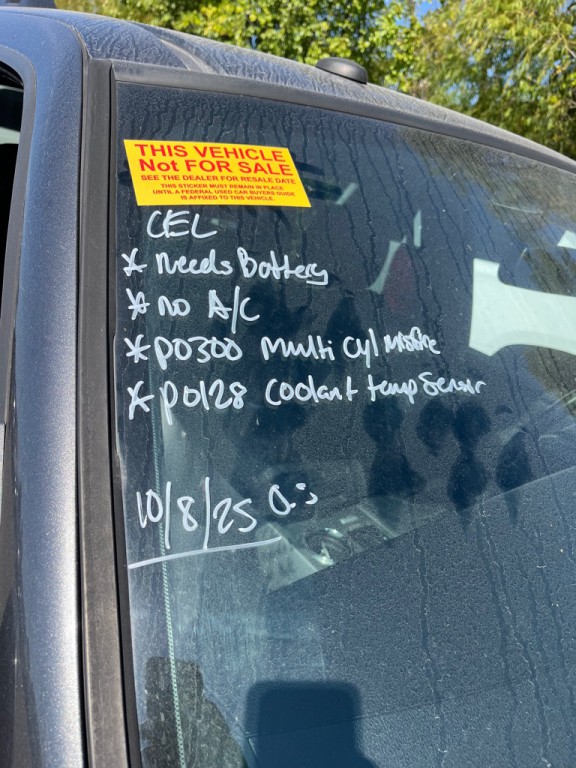 THIS VEHICLE
Not FOR SALE
SEE THE DEALER FOR RESALE DATE
THIS STICKER MUST REMAIN IN PLACE
UNTIL A FEDERAL USED CAR BUYERS GUIDE
IS AFFIXED TO THIS VEHICLE.
CEL
* needs Battery
* no A/C
* P0300 Multi Cyl misfire
* P0128 Coolant temp Sensor
10/8/25